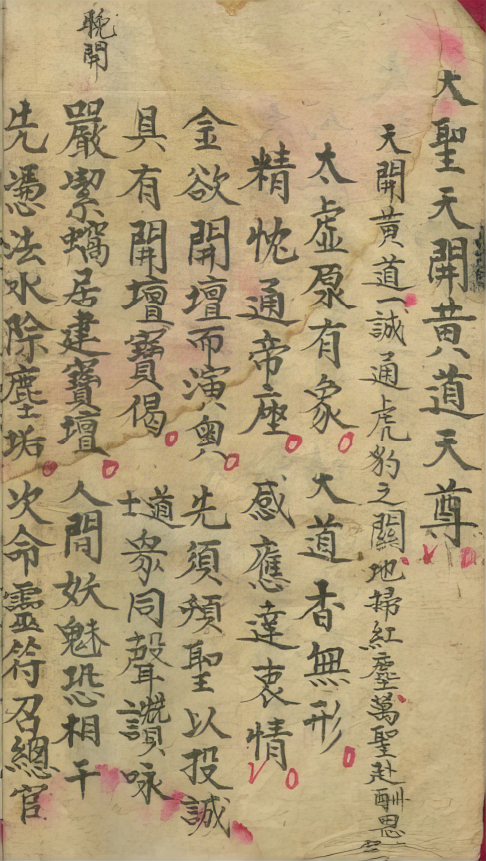 大聖天開黃道天尊
天開黃道一誠通虎豹之關地掃紅塵萬聖赴酬恩
太虛原有象 大道杳無形
精忱通帝座 感應達衷情
金欲開壇而演奧 先須預聖以投誠
具有開壇寶偈 道士眾同聲讚咏
晚開
嚴潔蝸居建寶壇 人間妖魅恐相干
先憑法水除塵垢 次命靈符召總官